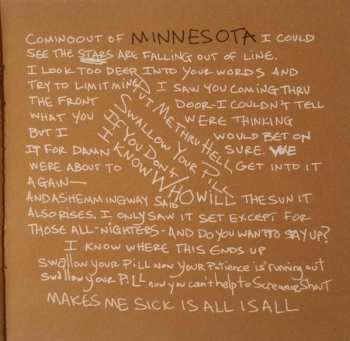 COMING OUT OF MINNESOTA I COULD
SEE THE STARS ARE FALLING OUT OF LINE.
I LOOK TOO DEEP INTO YOUR WORDS AND
TRY TO LIMIT MINE I SAW YOU COMING THRU
THE FRONT DOOR-I COULDN'T TELL
WHAT YOU WERE THINKING
BUT I WOULD BET ON
IT FOR DAMN SURE. WE
WERE ABOUT TO GET INTO IT
AGAIN—
CUT ME THRU HELL
SWALLOW YOUR PILL
IF YOU DON'T
I KNOW WHO WILL
AND AS HEMMINGWAY SAID THE SUN IT
ALSO RISES. I ONLY SAW IT SET EXCEPT FOR
THOSE ALL-NIGHTERS-AND DO YOU WANT TO SAY UP?
I KNOW WHERE THIS ENDS UP
SWALLOW YOUR PILL NOW YOUR PATIENCE is RUNNING OUT
SWALLOW YOUR PILL NOW YOU CAN'T HELP TO SCREAM OR SHOUT
MAKES ME SICK IS ALL IS ALL